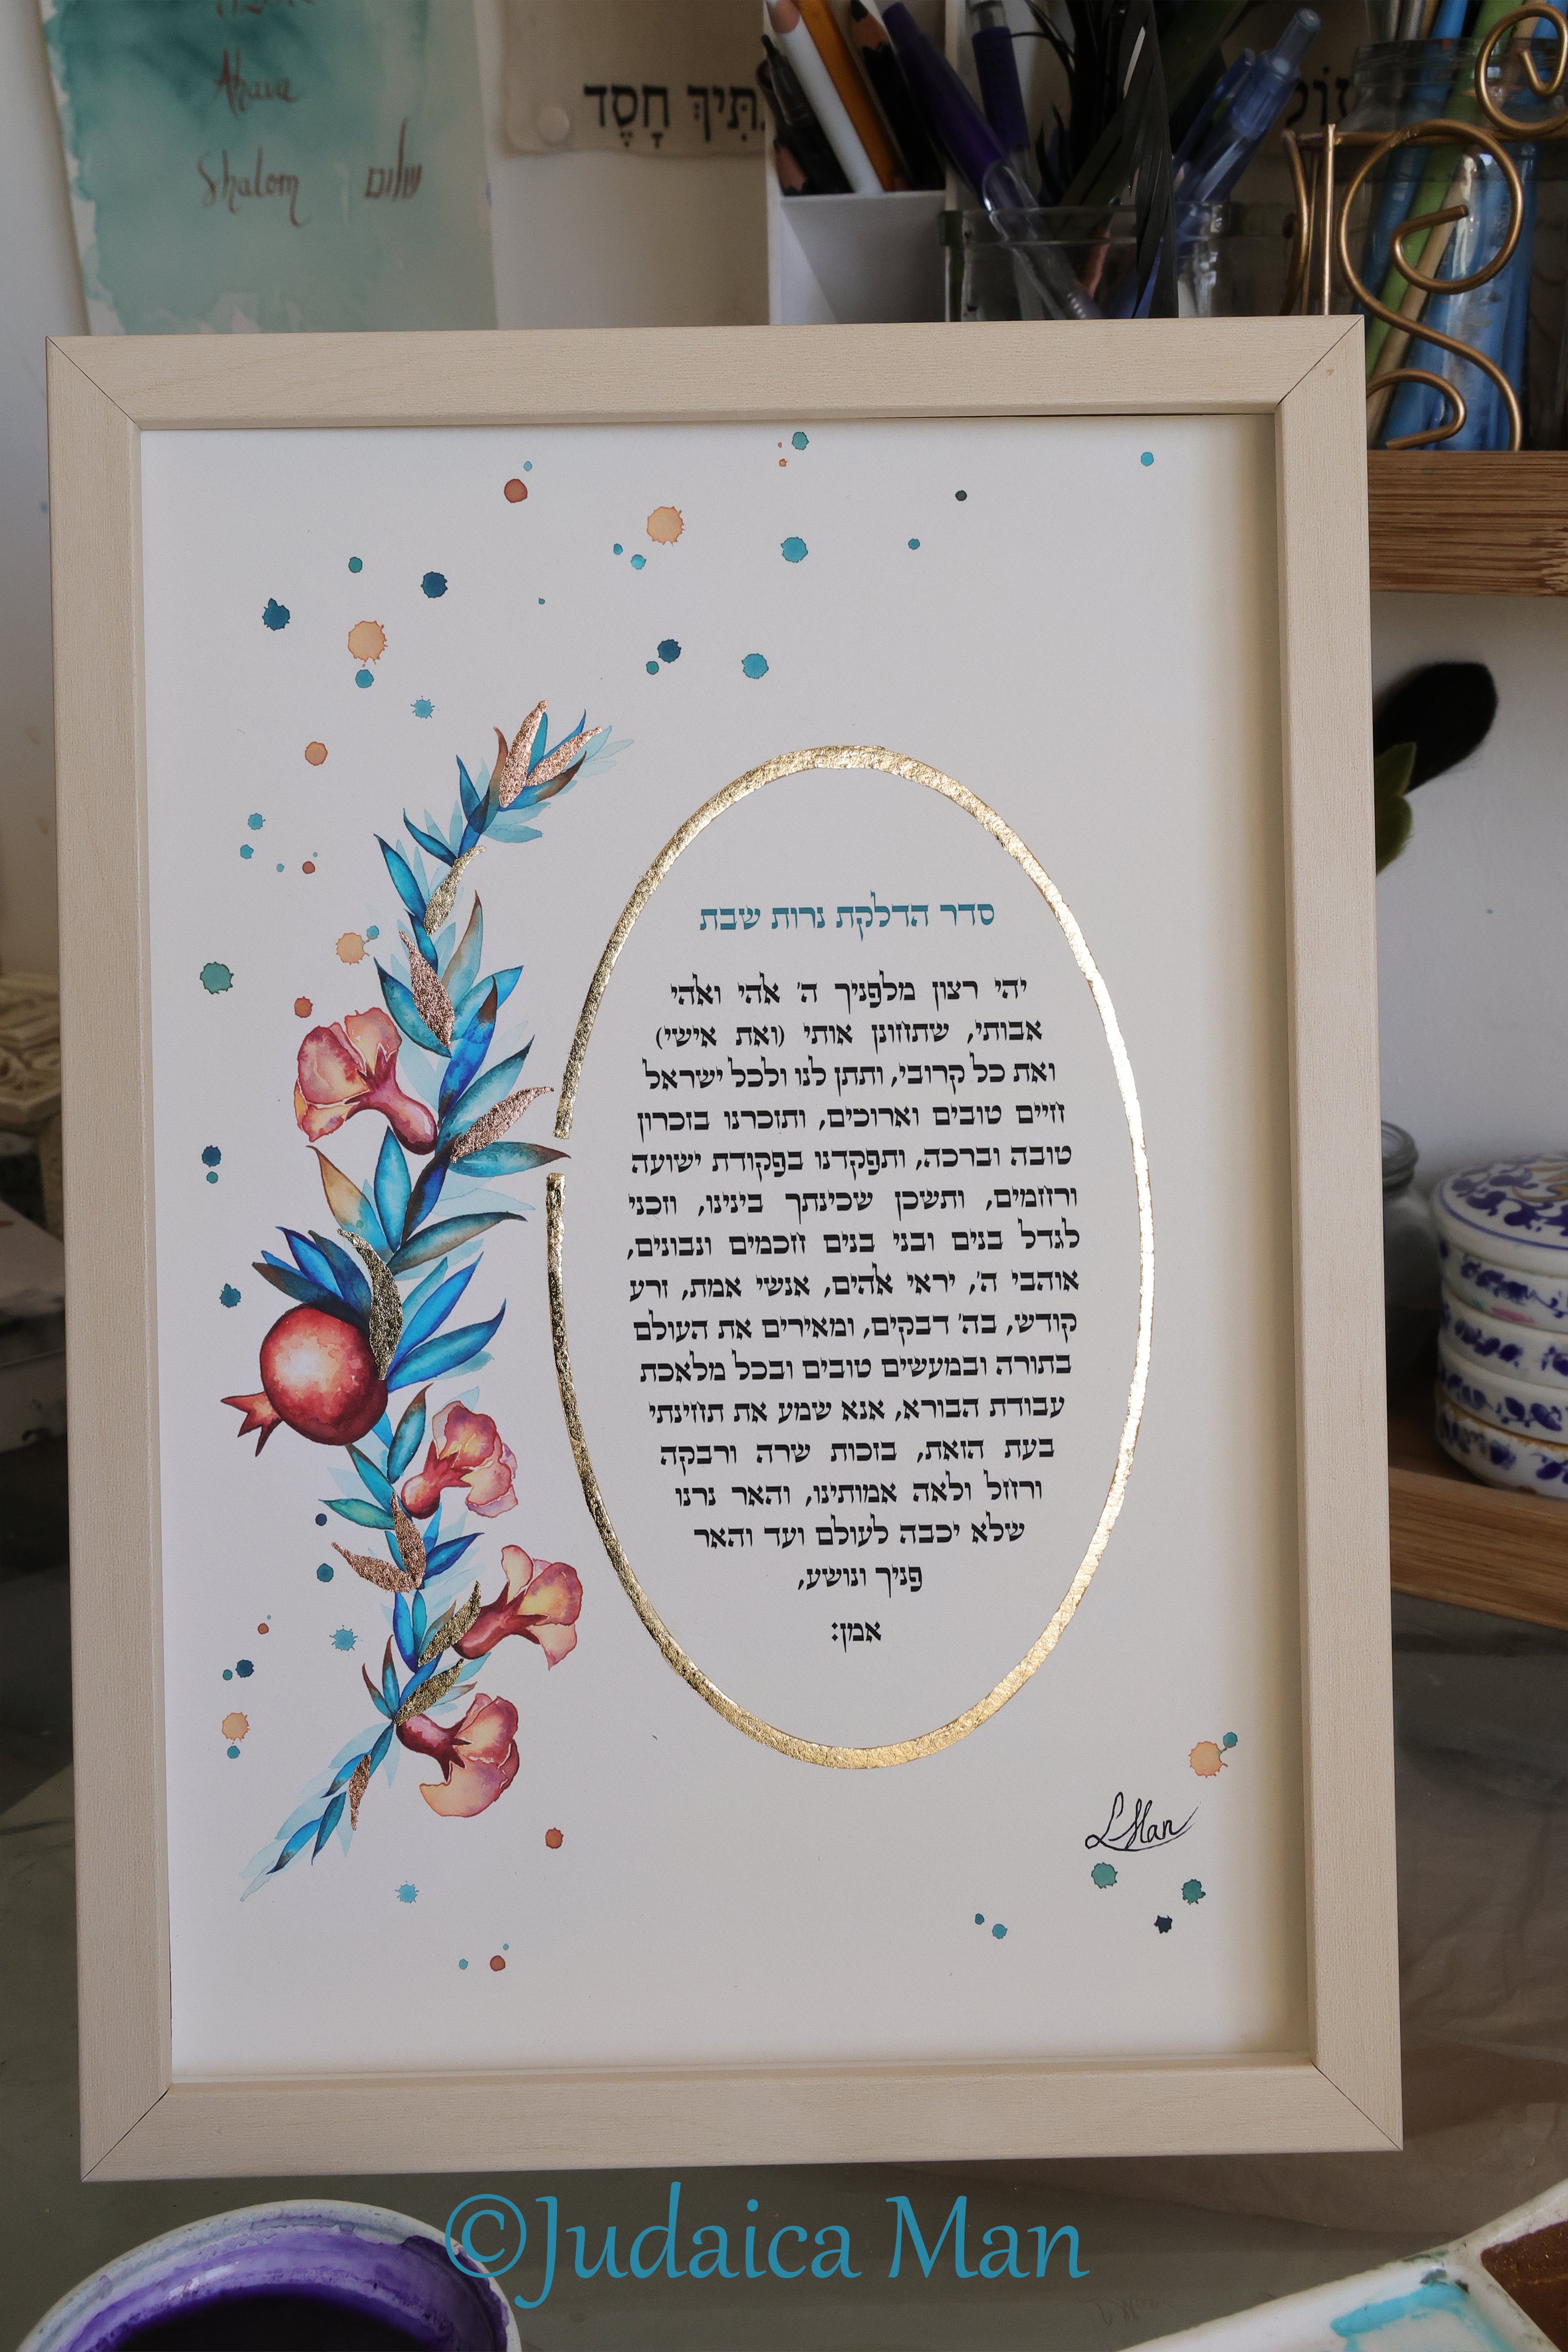 Ahava
Shalom שלום
תִּיךְ חָסֶד
סדר הדלקת נרות שבת
יהי רצון מלפניך ה' אלהי ואלהי
אבותי, שתחונן אותי (ואת אישי)
ואת כל קרובי, ותתן לנו ולכל ישראל
חיים טובים וארוכים, ותזכרנו בזכרון
טובה וברכה, ותפקדנו בפקודת ישועה
ורחמים, ותשכן שכינתך בינינו, וזכני
לגדל בנים ובני בנים חכמים ונבונים,
אוהבי ה', יראי אלהים, אנשי אמת, זרע
קודש, בה' דבקים, ומאירים את העולם
בתורה ובמעשים טובים ובכל מלאכת
עבודת הבורא, אנא שמע את תחינתי
בעת הזאת, בזכות שרה ורבקה
ורחל ולאה אמותינו, והאר נרנו
שלא יכבה לעולם ועד והאר
פניך ונושע,
אמן:
L Man
©Judaica Man